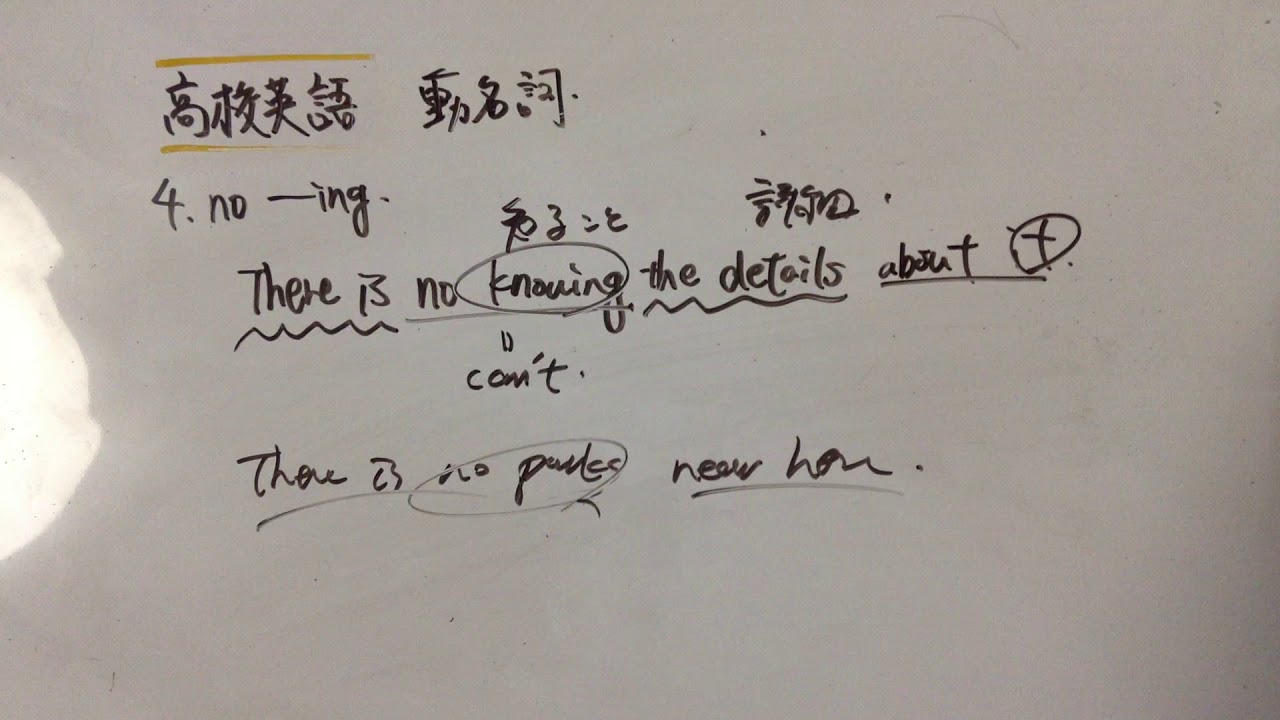 高校英語 動名詞.
4. no —ing.
知ること 詳細.
There is no knowing the details about it.
can't.
There is no parks near here.